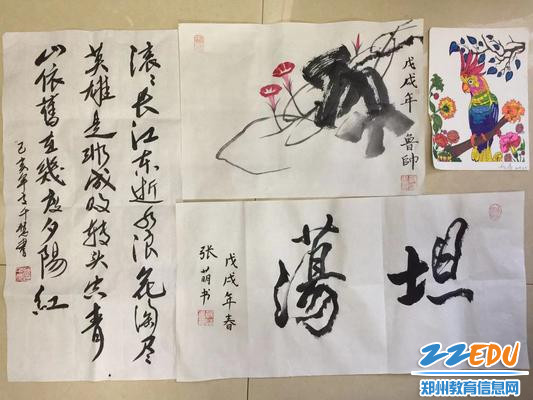 滚々长江东逝水浪花淘尽
英雄是非成败转头空青
山依旧在几度夕陽红
己亥年
书
戊戌年
鲁帅
坦蕩
戊戌年春
张萌书
22EDU
郑州教育信息网